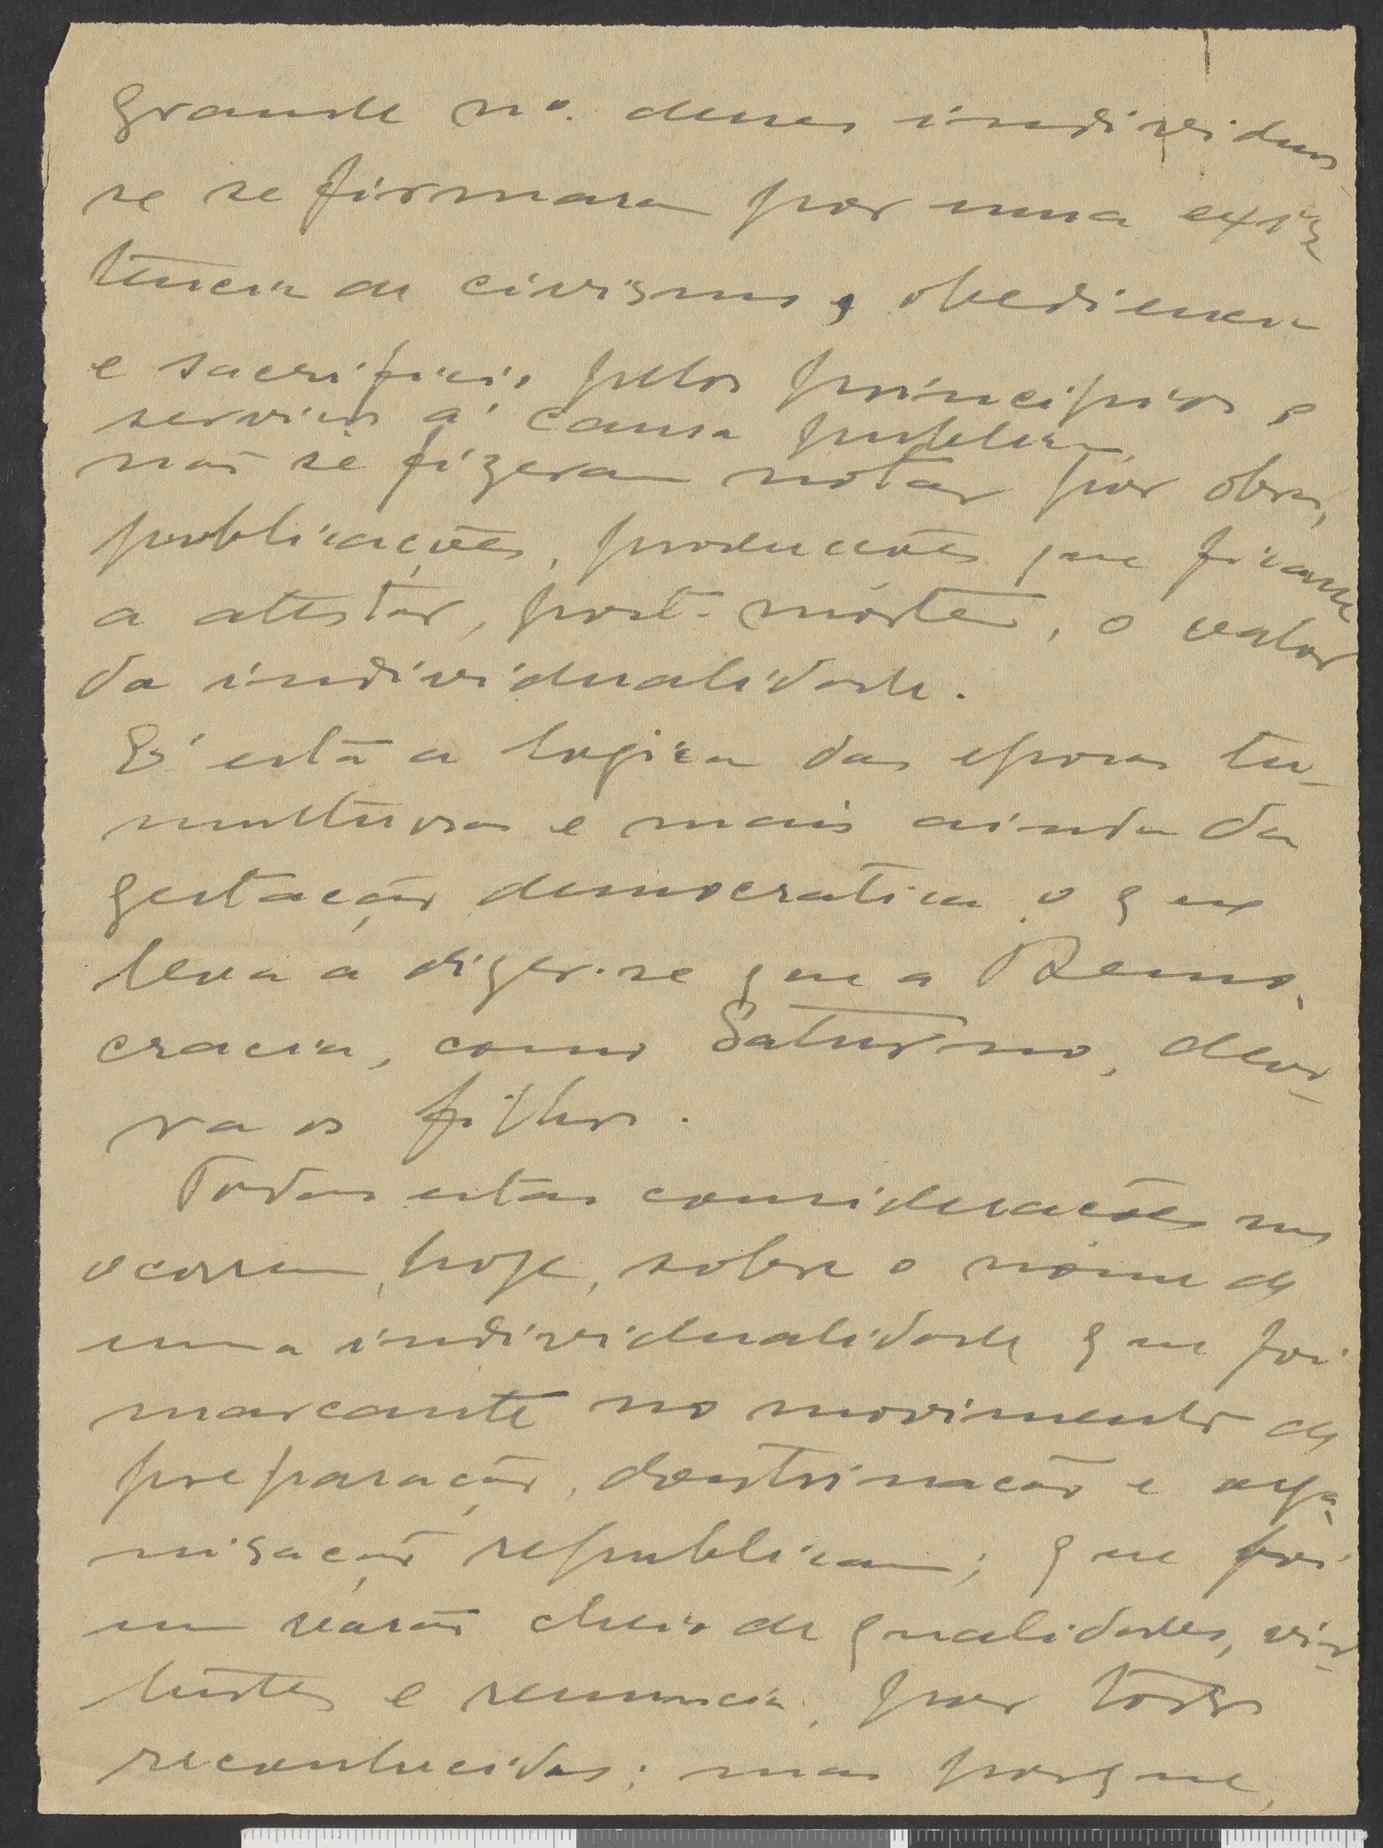 grande nº. desses individuos
se se firmaram por uma exis
tencia de civismo, obediencia
e sacrificio pelos principios e
serviços á causa publica,
não se fizeram notar por obras,
publicações, producções que ficassem
a attestar, post-mórtem, o valor
da individualidade.
E' esta a logica das epocas tu-
multuosas e mais ainda da
gestação democratica o que
leva a dizer-se que a Demo-
cracia, como Saturno, devo-
ra os filhos.
Todas estas considerações nos
ocorrem, hoje, sobre o nome de
uma individualidade que foi
marcante no movimento de
preparação, doutrinação e orga-
nisação republicana; que foi
um varão cheio de qualidades, vir-
tudes e renuncia, por todos
reconhecidas; mas porque,